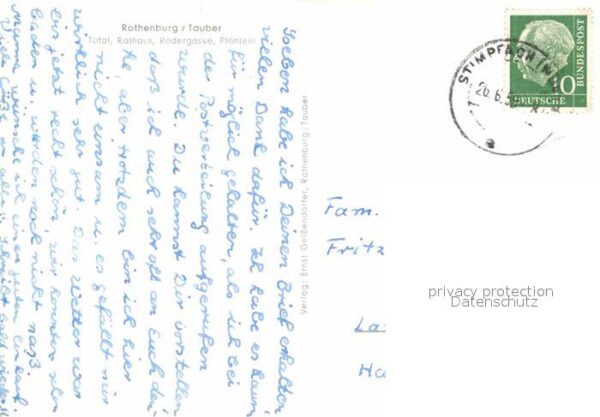 Rothenburg / Tauber
Total, Rathaus, Rödergasse, Plönlein
Soeben habe ich Deinen Brief erhalten
vielen Dank dafür. Ich habe es kaum
für möglich gehalten, als ich bei
der Postverteilung aufgerufen
wurde. Du kannst Dir vorstellen
daß ich auch sehr oft an Euch den-
ke, aber trotzdem bin ich hier
nicht einsam u. es gefällt mir
wirklich sehr gut. Das Wetter war
bis jetzt recht schön, wir konnten schon
baden u. werden noch nicht naß.
Mama wünsche ich einen guten Einkauf
Viele Grüße an alle
Verlag: Ernst Geißendörfer, Rothenburg/Tauber
STIMPFACH
26.6.5
DEUTSCHE
BUNDESPOST
10
Fam.
Fritz
La
Ha
privacy protection
Datenschutz